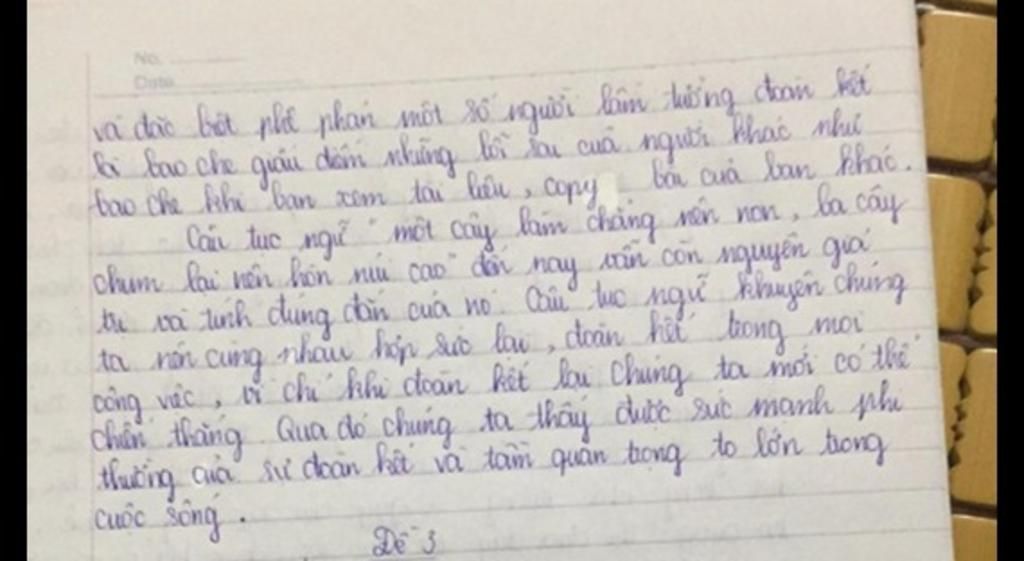 No.
Date
và đặc biệt phê phán một số người lầm tưởng đoàn kết
là bao che giấu diếm những lỗi sai của người khác như
bao che khi bạn xem tài liệu, copy bài của bạn khác.
Câu tục ngữ "một cây làm chẳng nên non, ba cây
chụm lại nên hòn núi cao" đến nay vẫn còn nguyên giá
trị và tính đúng đắn của nó. Câu tục ngữ khuyên chúng
ta nên cùng nhau hợp sức lại, đoàn kết trong mọi
công việc, vì chỉ khi đoàn kết lại chúng ta mới có thể
chiến thắng. Qua đó chúng ta thấy được sức mạnh phi
thường của sự đoàn kết và tầm quan trọng to lớn trong
cuộc sống.
Đề 3